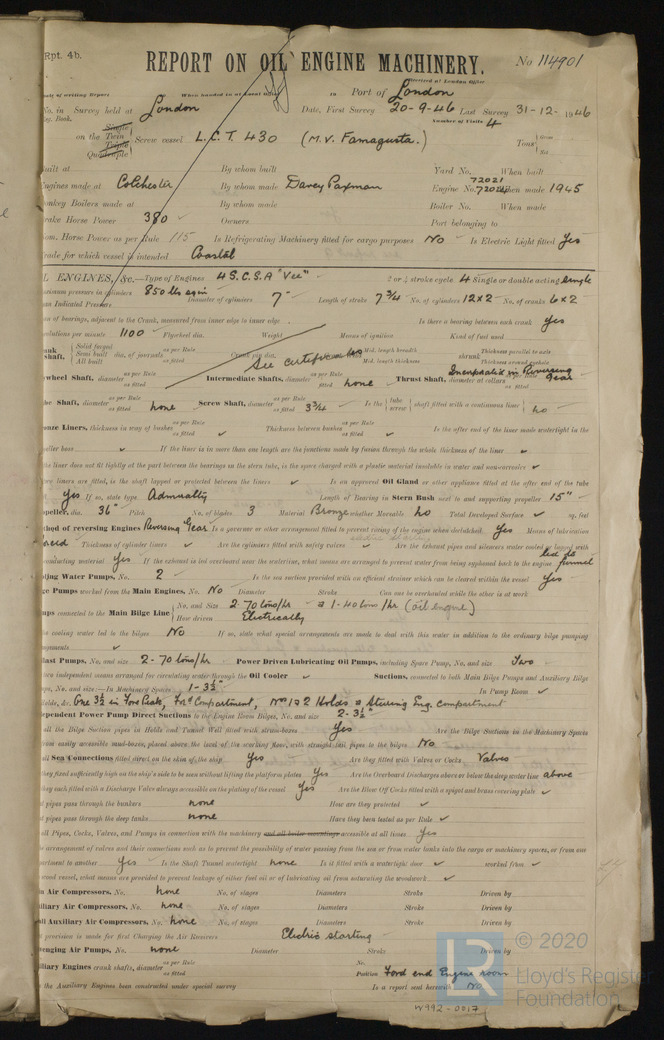 Rpt. 4b.
REPORT ON OIL ENGINE MACHINERY.
No 114901
Received at London Office
Date of writing Report When handed in at Local Office Port of London
No. in Survey held at London Date, First Survey 20-9-46 Last Survey 31-12-1946
Reg. Book. Number of Visits 4
Single
on the Twin Screw vessel L.C.T. 430 (M.V. Famagusta.) Tons Gross
Triple Net
Quadruple
Built at By whom built Yard No. When built
Engines made at Colchester By whom made Davey Paxman Engine No. 72021 When made 1945
Donkey Boilers made at By whom made Boiler No. When made
Brake Horse Power 380 Owners Port belonging to
Nom. Horse Power as per Rule 115 Is Refrigerating Machinery fitted for cargo purposes No Is Electric Light fitted Yes
Trade for which vessel is intended Coastal
OIL ENGINES, &c.—Type of Engines 4 S.C.S.A "Vee" 2 or 4 stroke cycle 4 Single or double acting Single
Maximum pressure in cylinders 850 lbs Diameter of cylinders 7" Length of stroke 7 3/4 No. of cylinders 12 x 2 No. of cranks 6 x 2
Mean Indicated Pressure
Span of bearings, adjacent to the Crank, measured from inner edge to inner edge Is there a bearing between each crank Yes
Revolutions per minute 1100 Flywheel dia. Weight Means of ignition Kind of fuel used
Crank Shaft, Solid forged Semi built All built dia. of journals as per Rule as fitted Crank pin dia. See certificates Mid. length breadth Mid. length thickness shrunk Thickness parallel to axis Thickness around eyehole
Flywheel Shaft, diameter as per Rule as fitted Intermediate Shafts, diameter as per Rule as fitted none Thrust Shaft, diameter at collars as per Rule as fitted Incorporated in Reversing Gear
Tube Shaft, diameter as per Rule as fitted none Screw Shaft, diameter as per Rule as fitted 3 3/4 Is the tube screw shaft fitted with a continuous liner no
Bronze Liners, thickness in way of bushes as per Rule as fitted ✓ Thickness between bushes as per Rule as fitted ✓ Is the after end of the liner made watertight in the
propeller boss ✓ If the liner is in more than one length are the junctions made by fusion through the whole thickness of the liner ✓
If the liner does not fit tightly at the part between the bearings in the stern tube, is the space charged with a plastic material insoluble in water and non-corrosive ✓
If two liners are fitted, is the shaft lapped or protected between the liners ✓ Is an approved Oil Gland or other appliance fitted at the after end of the tube
Yes If so, state type Admiralty Length of Bearing in Stern Bush next to and supporting propeller 15"
Propeller, dia. 36" Pitch No. of blades 3 Material Bronze whether Moveable No Total Developed Surface ✓ sq. feet
Method of reversing Engines Reversing Gear Is a governor or other arrangement fitted to prevent racing of the engine when declutched Yes Means of lubrication
forced Thickness of cylinder liners ✓ Are the cylinders fitted with safety valves ✓ Are the exhaust pipes and silencers water cooled or lagged with
non-conducting material Yes If the exhaust is led overboard near the waterline, what means are arranged to prevent water from being syphoned back to the engine led to funnel
Cooling Water Pumps, No. 2 Is the sea suction provided with an efficient strainer which can be cleared within the vessel Yes
Bilge Pumps worked from the Main Engines, No. No Diameter Stroke Can one be overhauled while the other is at work
Pumps connected to the Main Bilge Line No. and Size 2-70 tons/hr & 1-40 tons/hr (oil engine)
How driven Electrically
Is the cooling water led to the bilges No If so, state what special arrangements are made to deal with this water in addition to the ordinary bilge pumping
arrangements ✓
Ballast Pumps, No. and size 2-70 tons/hr Power Driven Lubricating Oil Pumps, including Spare Pump, No. and size Two
Are two independent means arranged for circulating water through the Oil Cooler ✓ Suctions, connected to both Main Bilge Pumps and Auxiliary Bilge
Pumps, No. and size:—In Machinery Spaces 1-3½" In Pump Room ✓
In Holds, &c. One 3½ in Fore Peak, For'd Compartment, Nos 1 & 2 Holds & Steering Eng. compartment
Independent Power Pump Direct Suctions to the Engine Room Bilges, No. and size 2-3½"
Are all the Bilge Suction pipes in Holds and Tunnel Well fitted with strum-boxes Yes Are the Bilge Suctions in the Machinery Spaces
led from easily accessible mud-boxes, placed above the level of the working floor, with straight tail pipes to the bilges No
Are all Sea Connections fitted direct on the skin of the ship Yes Are they fitted with Valves or Cocks Valves
Are they fixed sufficiently high on the ship's side to be seen without lifting the platform plates Yes Are the Overboard Discharges above or below the deep water line above
Are they each fitted with a Discharge Valve always accessible on the plating of the vessel Yes Are the Blow Off Cocks fitted with a spigot and brass covering plate ✓
What pipes pass through the bunkers none How are they protected ✓
What pipes pass through the deep tanks none Have they been tested as per Rule ✓
Are all Pipes, Cocks, Valves, and Pumps in connection with the machinery and all boiler mountings accessible at all times Yes
Is the arrangement of valves and their connections such as to prevent the possibility of water passing from the sea or from water tanks into the cargo or machinery spaces, or from one
compartment to another Yes Is the Shaft Tunnel watertight none Is it fitted with a watertight door ✓ worked from ✓
If a wood vessel, what means are provided to prevent leakage of either fuel oil or of lubricating oil from saturating the woodwork ✓
Main Air Compressors, No. none No. of stages Diameters Stroke Driven by
Auxiliary Air Compressors, No. none No. of stages Diameters Stroke Driven by
Small Auxiliary Air Compressors, No. none No. of stages Diameters Stroke Driven by
What provision is made for first Charging the Air Receivers Electric starting
Scavenging Air Pumps, No. none Diameter Stroke Driven by
Auxiliary Engines crank shafts, diameter as per Rule as fitted No. Position Ford end Engine room
Have the Auxiliary Engines been constructed under special survey Is a report sent herewith No
W992-0017
LR
© 2020
Lloyd's Register
Foundation